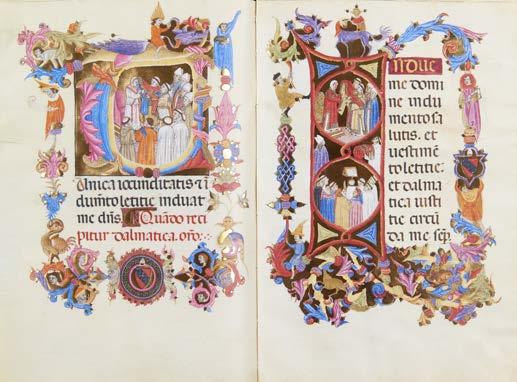 unica iocunditatis τι
dumto letitie induat
me dns. Quando reci
pitur dalmatica. oro.
Indue
me domi
ne indu
mento sa
lutis. et
vestimen
to letitie:
et dalma
tica iusti
tie circu
da me sep.